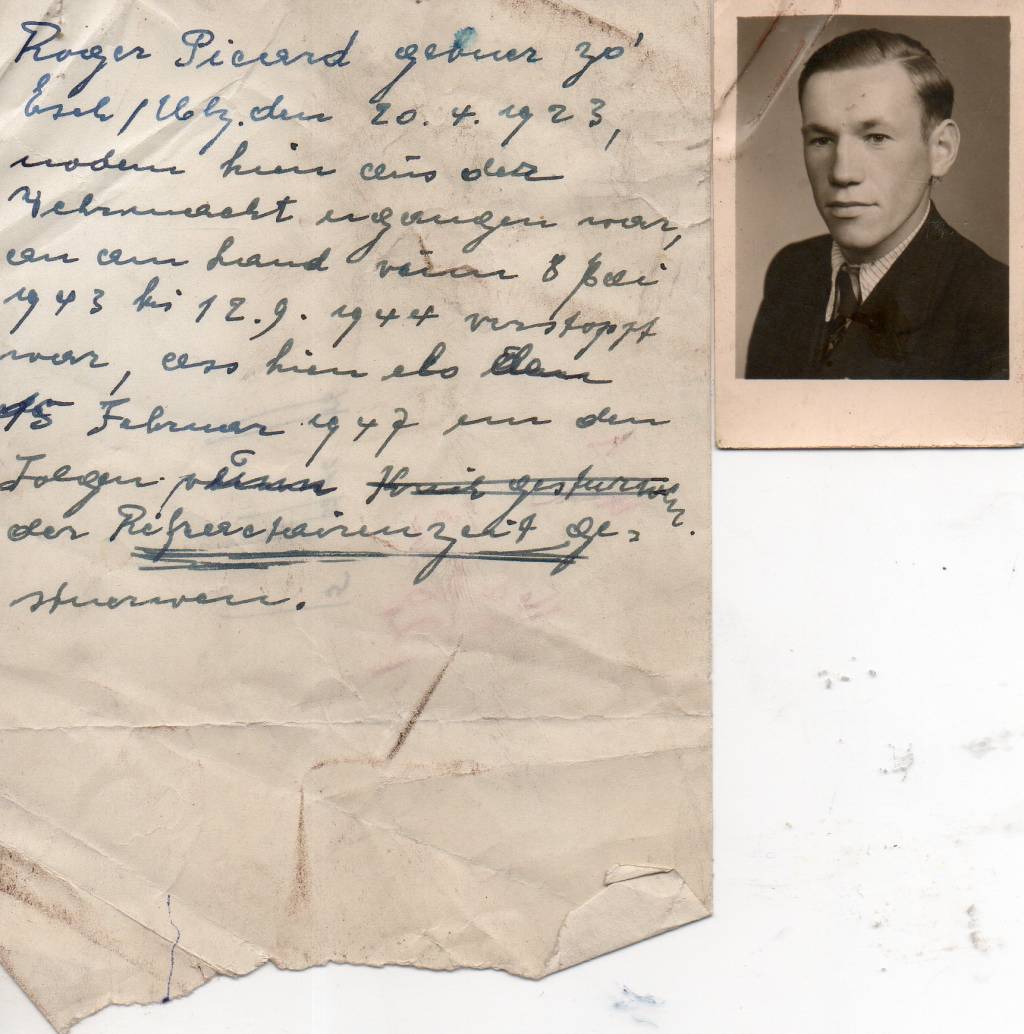 Roger Piccard gebuer zo'
Esch/Uelz. den 20. 4. 1923,
nodem hien aus der
Wehrmacht ugangen war,
an am Land vum 8
1943 bis 12. 9. 1944 verstoppt
war, ass hien elo den
15 Februar 1947 un den
Folgen vun gesturwen
der Refractairenzeit ge-
stuerwen.